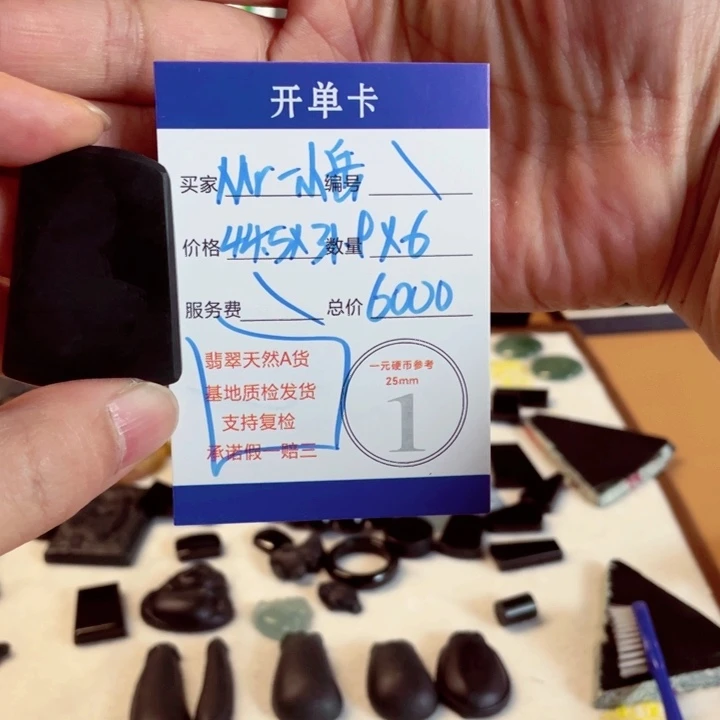 开单卡
买家 Mr 一山岳 编号
价格 44.5X31.9X6 数量
服务费 总价 6000
翡翠天然A货
基地质检发货
支持复检
承诺假一赔三
一元硬币参考
25mm
1